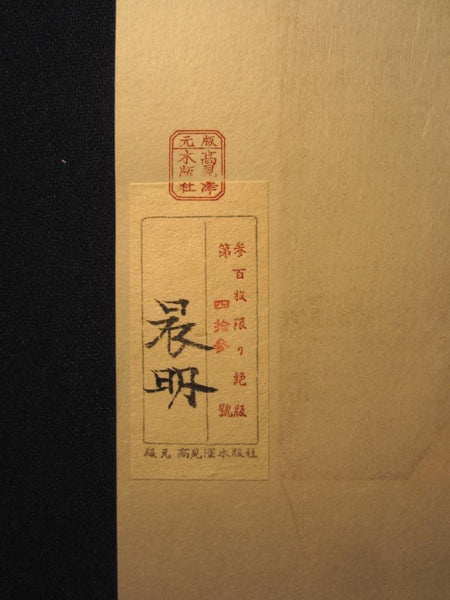 版元
高見澤
木版社
参百枚限り絶版
第四拾參號
晨明
版元 高見澤木版社